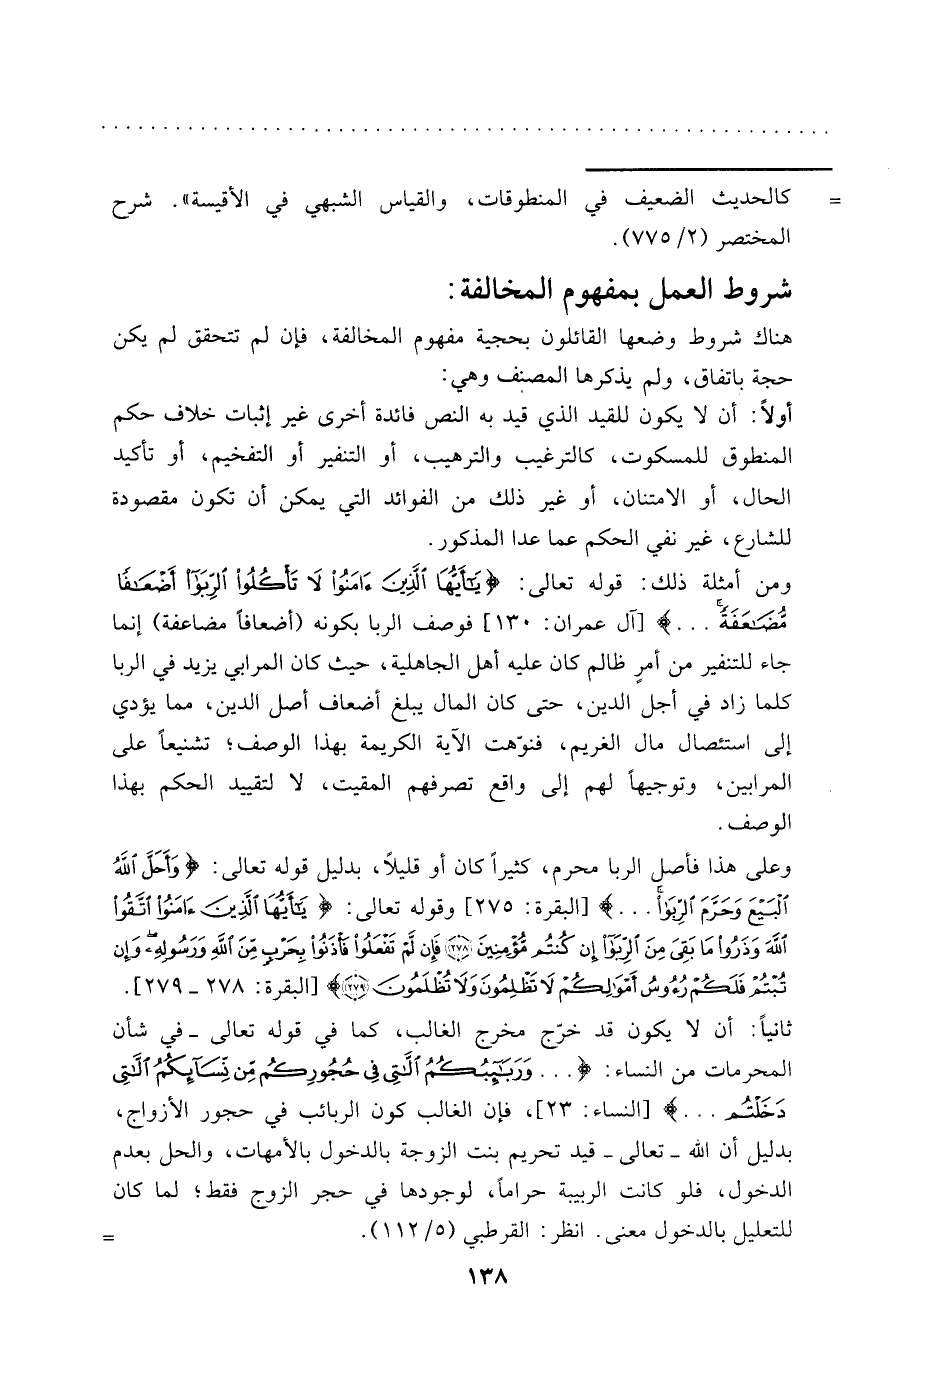 = كالحديث الضعيف في المنطوقات، والقياس الشبهي في الأقيسة». شرح
المختصر (٢/ ٧٧٥).
شروط العمل بمفهوم المخالفة:
هناك شروط وضعها القائلون بحجية مفهوم المخالفة، فإن لم تتحقق لم يكن
حجة باتفاق، ولم يذكرها المصنف وهي:
أولاً: أن لا يكون للقيد الذي قيد به النص فائدة أخرى غير إثبات خلاف حكم
المنطوق للمسكوت، كالترغيب والترهيب، أو التنفير أو التفخيم، أو تأكيد
الحال، أو الامتنان، أو غير ذلك من الفوائد التي يمكن أن تكون مقصودة
للشارع، غير نفي الحكم عما عدا المذكور.
ومن أمثلة ذلك: قوله تعالى: ﴿يَٰٓأَيُّهَا ٱلَّذِينَ ءَامَنُوا۟ لَا تَأْكُلُوا۟ ٱلرِّبَوٰٓا۟ أَضْعَٰفًا
مُّضَٰعَفَةً ۖ ...﴾ [آل عمران: ١٣٠] فوصف الربا بكونه (أضعافاً مضاعفة) إنما
جاء للتنفير من أمرٍ ظالم كان عليه أهل الجاهلية، حيث كان المرابي يزيد في الربا
كلما زاد في أجل الدين، حتى كان المال يبلغ أضعاف أصل الدين، مما يؤدي
إلى استئصال مال الغريم، فنوّهت الآية الكريمة بهذا الوصف؛ تشنيعاً على
المرابين، وتوجيهاً لهم إلى واقع تصرفهم المقيت، لا لتقييد الحكم بهذا
الوصف.
وعلى هذا فأصل الربا محرم، كثيراً كان أو قليلاً، بدليل قوله تعالى: ﴿وَأَحَلَّ ٱللَّهُ
ٱلْبَيْعَ وَحَرَّمَ ٱلرِّبَوٰا۟ ۚ ...﴾ [البقرة: ٢٧٥] وقوله تعالى: ﴿يَٰٓأَيُّهَا ٱلَّذِينَ ءَامَنُوا۟ ٱتَّقُوا۟
ٱللَّهَ وَذَرُوا۟ مَا بَقِىَ مِنَ ٱلرِّبَوٰٓا۟ إِن كُنتُم مُّؤْمِنِينَ ﴿٢٧٨﴾ فَإِن لَّمْ تَفْعَلُوا۟ فَأْذَنُوا۟ بِحَرْبٍ مِّنَ ٱللَّهِ وَرَسُولِهِۦ ۖ وَإِن
تُبْتُمْ فَلَكُمْ رُءُوسُ أَمْوَٰلِكُمْ لَا تَظْلِمُونَ وَلَا تُظْلَمُونَ ﴿٢٧٩﴾﴾ [البقرة: ٢٧٨ ـ ٢٧٩].
ثانياً: أن لا يكون قد خرّج مخرج الغالب، كما في قوله تعالى ـ في شأن
المحرمات من النساء: ﴿... وَرَبَٰٓئِبُكُمُ ٱلَّٰتِى فِى حُجُورِكُم مِّن نِّسَآئِكُمُ ٱلَّٰتِى
دَخَلْتُم ...﴾ [النساء: ٢٣]، فإن الغالب كون الربائب في حجور الأزواج،
بدليل أن الله ـ تعالى ـ قيد تحريم بنت الزوجة بالدخول بالأمهات، والحل بعدم
الدخول، فلو كانت الربيبة حراماً، لوجودها في حجر الزوج فقط؛ لما كان
للتعليل بالدخول معنى. انظر: القرطبي (٥/ ١١٢). =
١٣٨